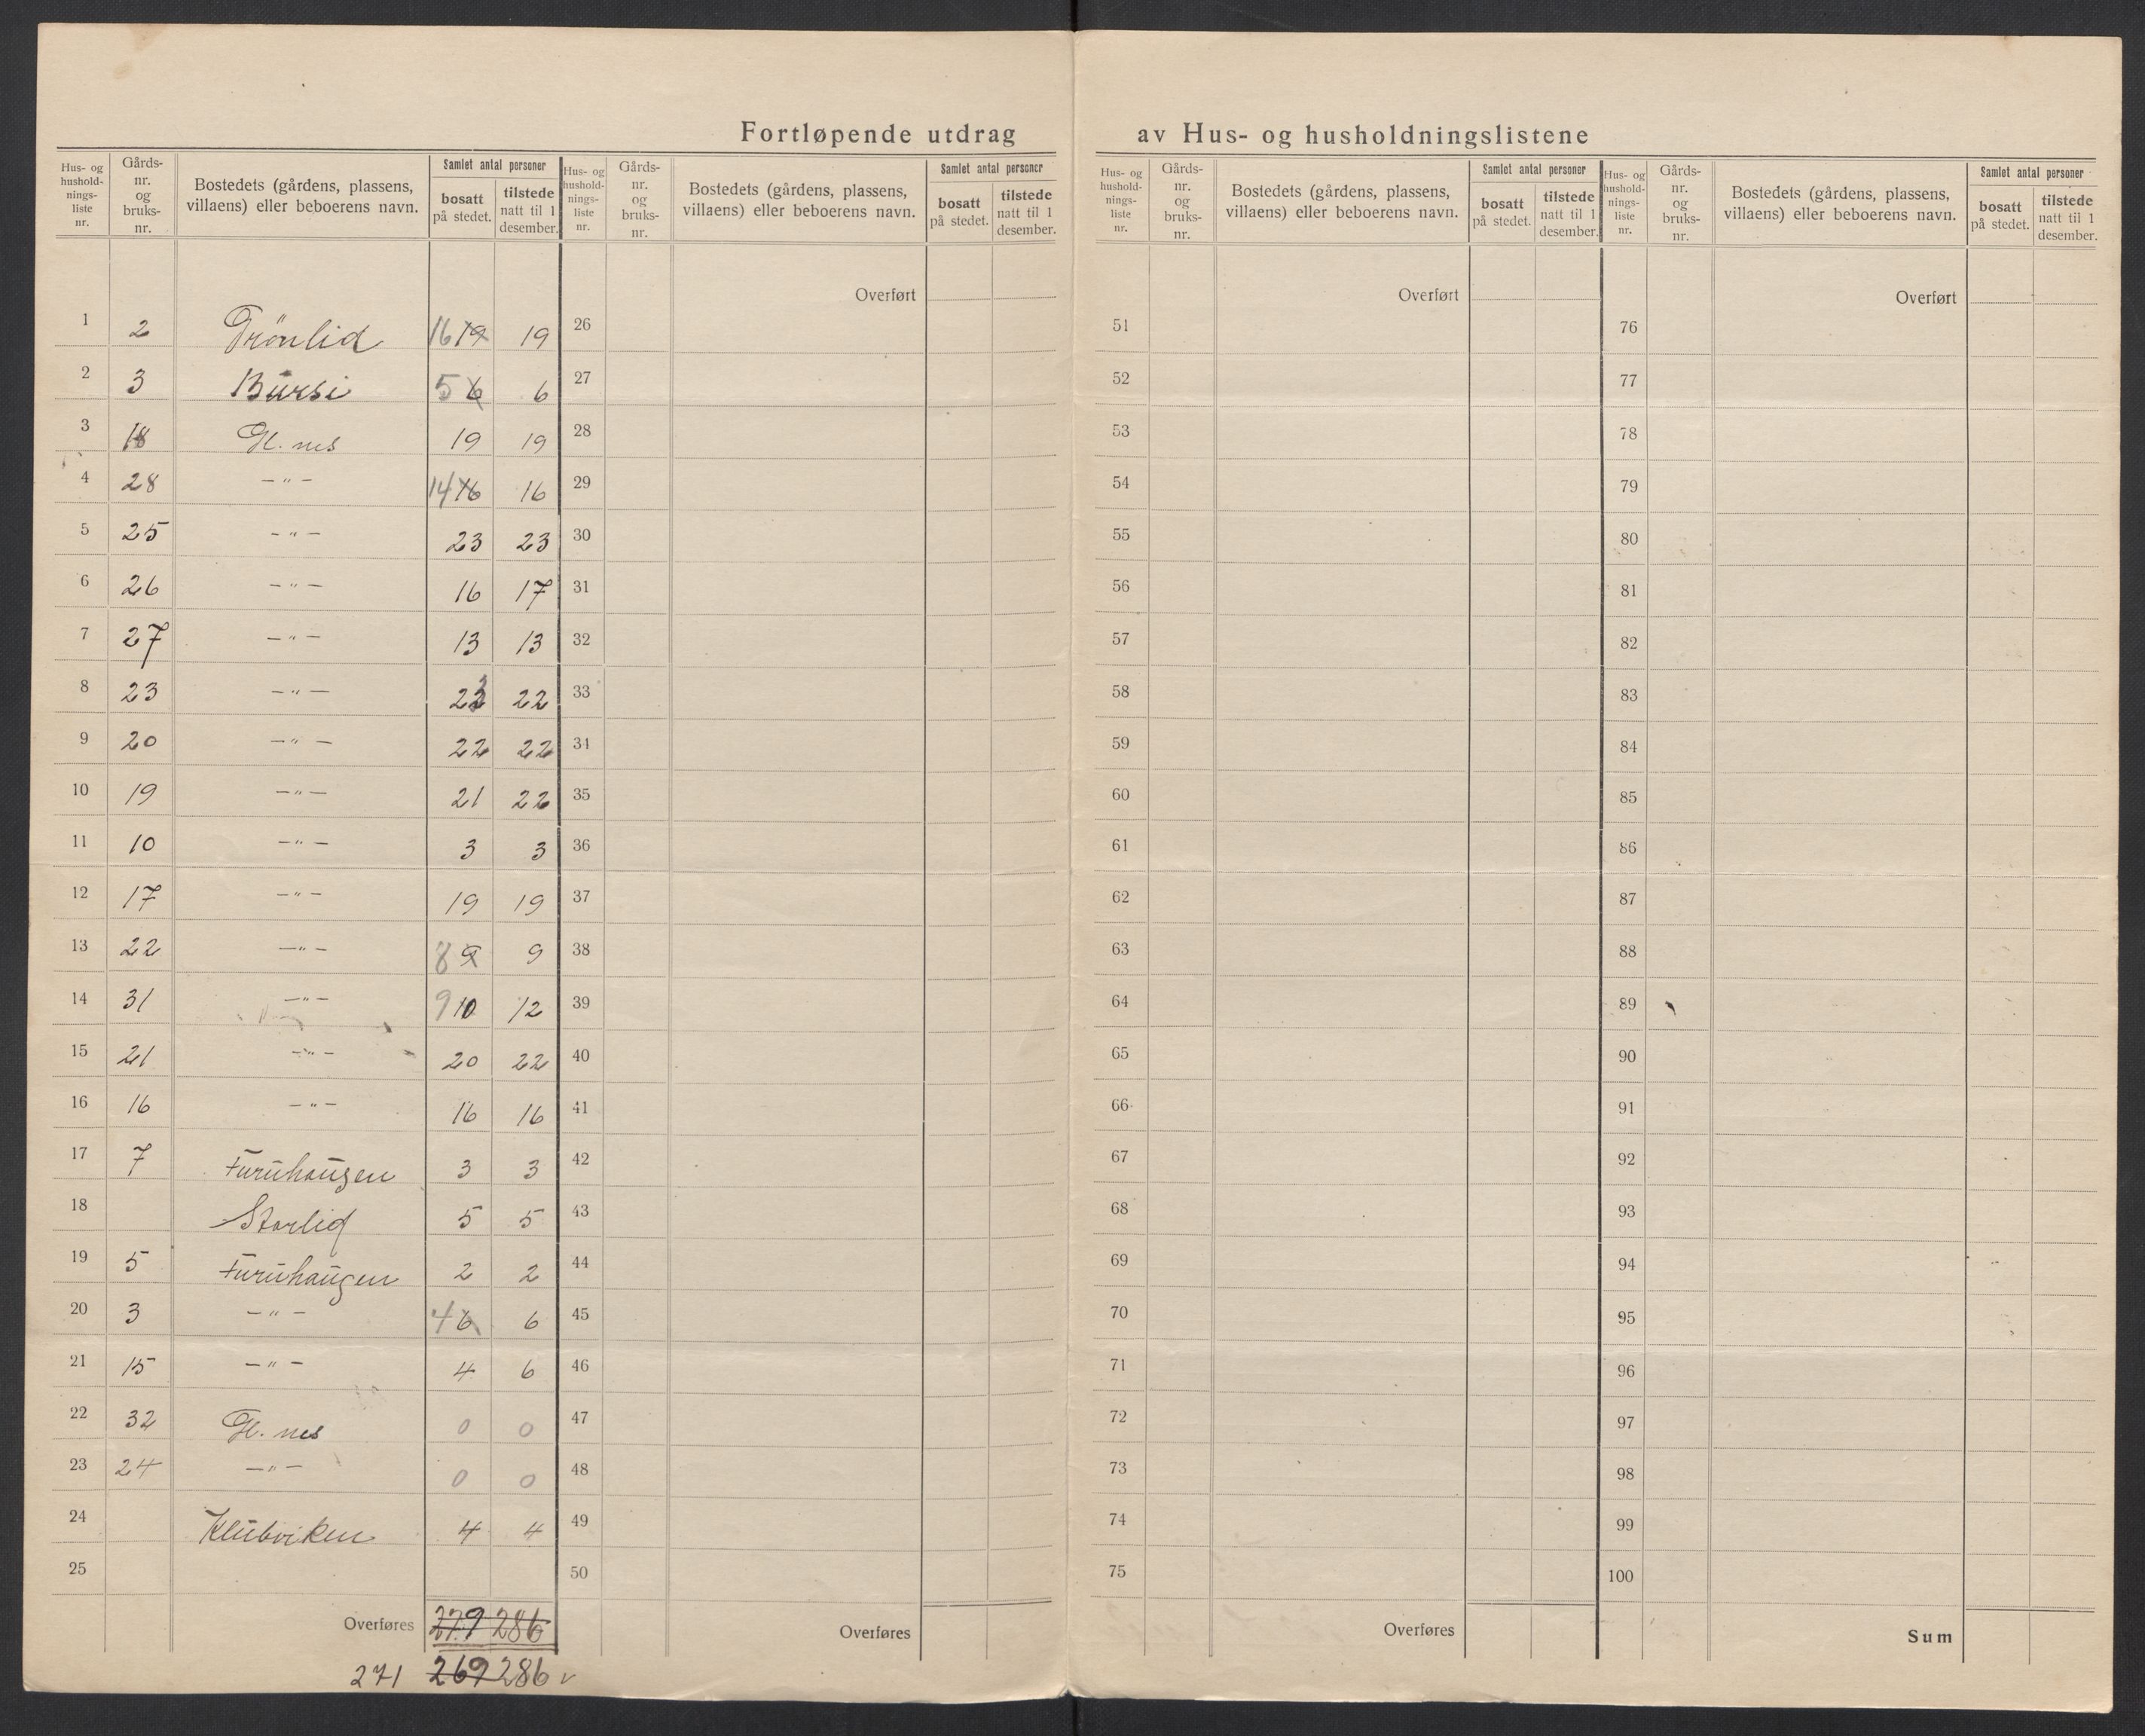 Fortløpende utdrag av Hus- og husholdningslistene
Hus- og hushold-nings-liste nr. Gårds-nr. og bruks-nr. Bostedets (gårdens, plassens, villaens) eller beboerens navn. Samlet antal personer bosatt på stedet. tilstede natt til 1 desember.
Hus- og hushold-nings-liste nr. Gårds-nr. og bruks-nr. Bostedets (gårdens, plassens, villaens) eller beboerens navn. Samlet antal personer bosatt på stedet. tilstede natt til 1 desember.
Hus- og hushold-nings-liste nr. Gårds-nr. og bruks-nr. Bostedets (gårdens, plassens, villaens) eller beboerens navn. Samlet antal personer bosatt på stedet. tilstede natt til 1 desember.
Hus- og hushold-nings-liste nr. Gårds-nr. og bruks-nr. Bostedets (gårdens, plassens, villaens) eller beboerens navn. Samlet antal personer bosatt på stedet. tilstede natt til 1 desember.
Overført Overført Overført
1 2 Trönlid 16 19 19 26 51 76
2 3 Bursi 5 6 6 27 52 77
3 18 Gl. nes 19 19 28 53 78
4 28 -"- 14 16 16 29 54 79
5 25 -"- 23 23 30 55 80
6 26 -"- 16 17 31 56 81
7 27 -"- 13 13 32 57 82
8 23 -"- 22 22 33 58 83
9 20 -"- 22 22 34 59 84
10 19 -"- 21 22 35 60 85
11 10 -"- 3 3 36 61 86
12 17 -"- 19 19 37 62 87
13 22 -"- 8 9 9 38 63 88
14 31 -"- 9 10 12 39 64 89
15 21 -"- 20 22 40 65 90
16 16 -"- 16 16 41 66 91
17 7 Furuhaugen 3 3 42 67 92
18 Storlid 5 5 43 68 93
19 5 Furuhaugen 2 2 44 69 94
20 3 -"- 4 6 6 45 70 95
21 15 -"- 4 6 46 71 96
22 32 Gl. nes 0 0 47 72 97
23 24 -"- 0 0 48 73 98
24 Klubviken 4 4 49 74 99
25 50 75 100
Overføres 279 286 Overføres Overføres Sum
271 269 286 v